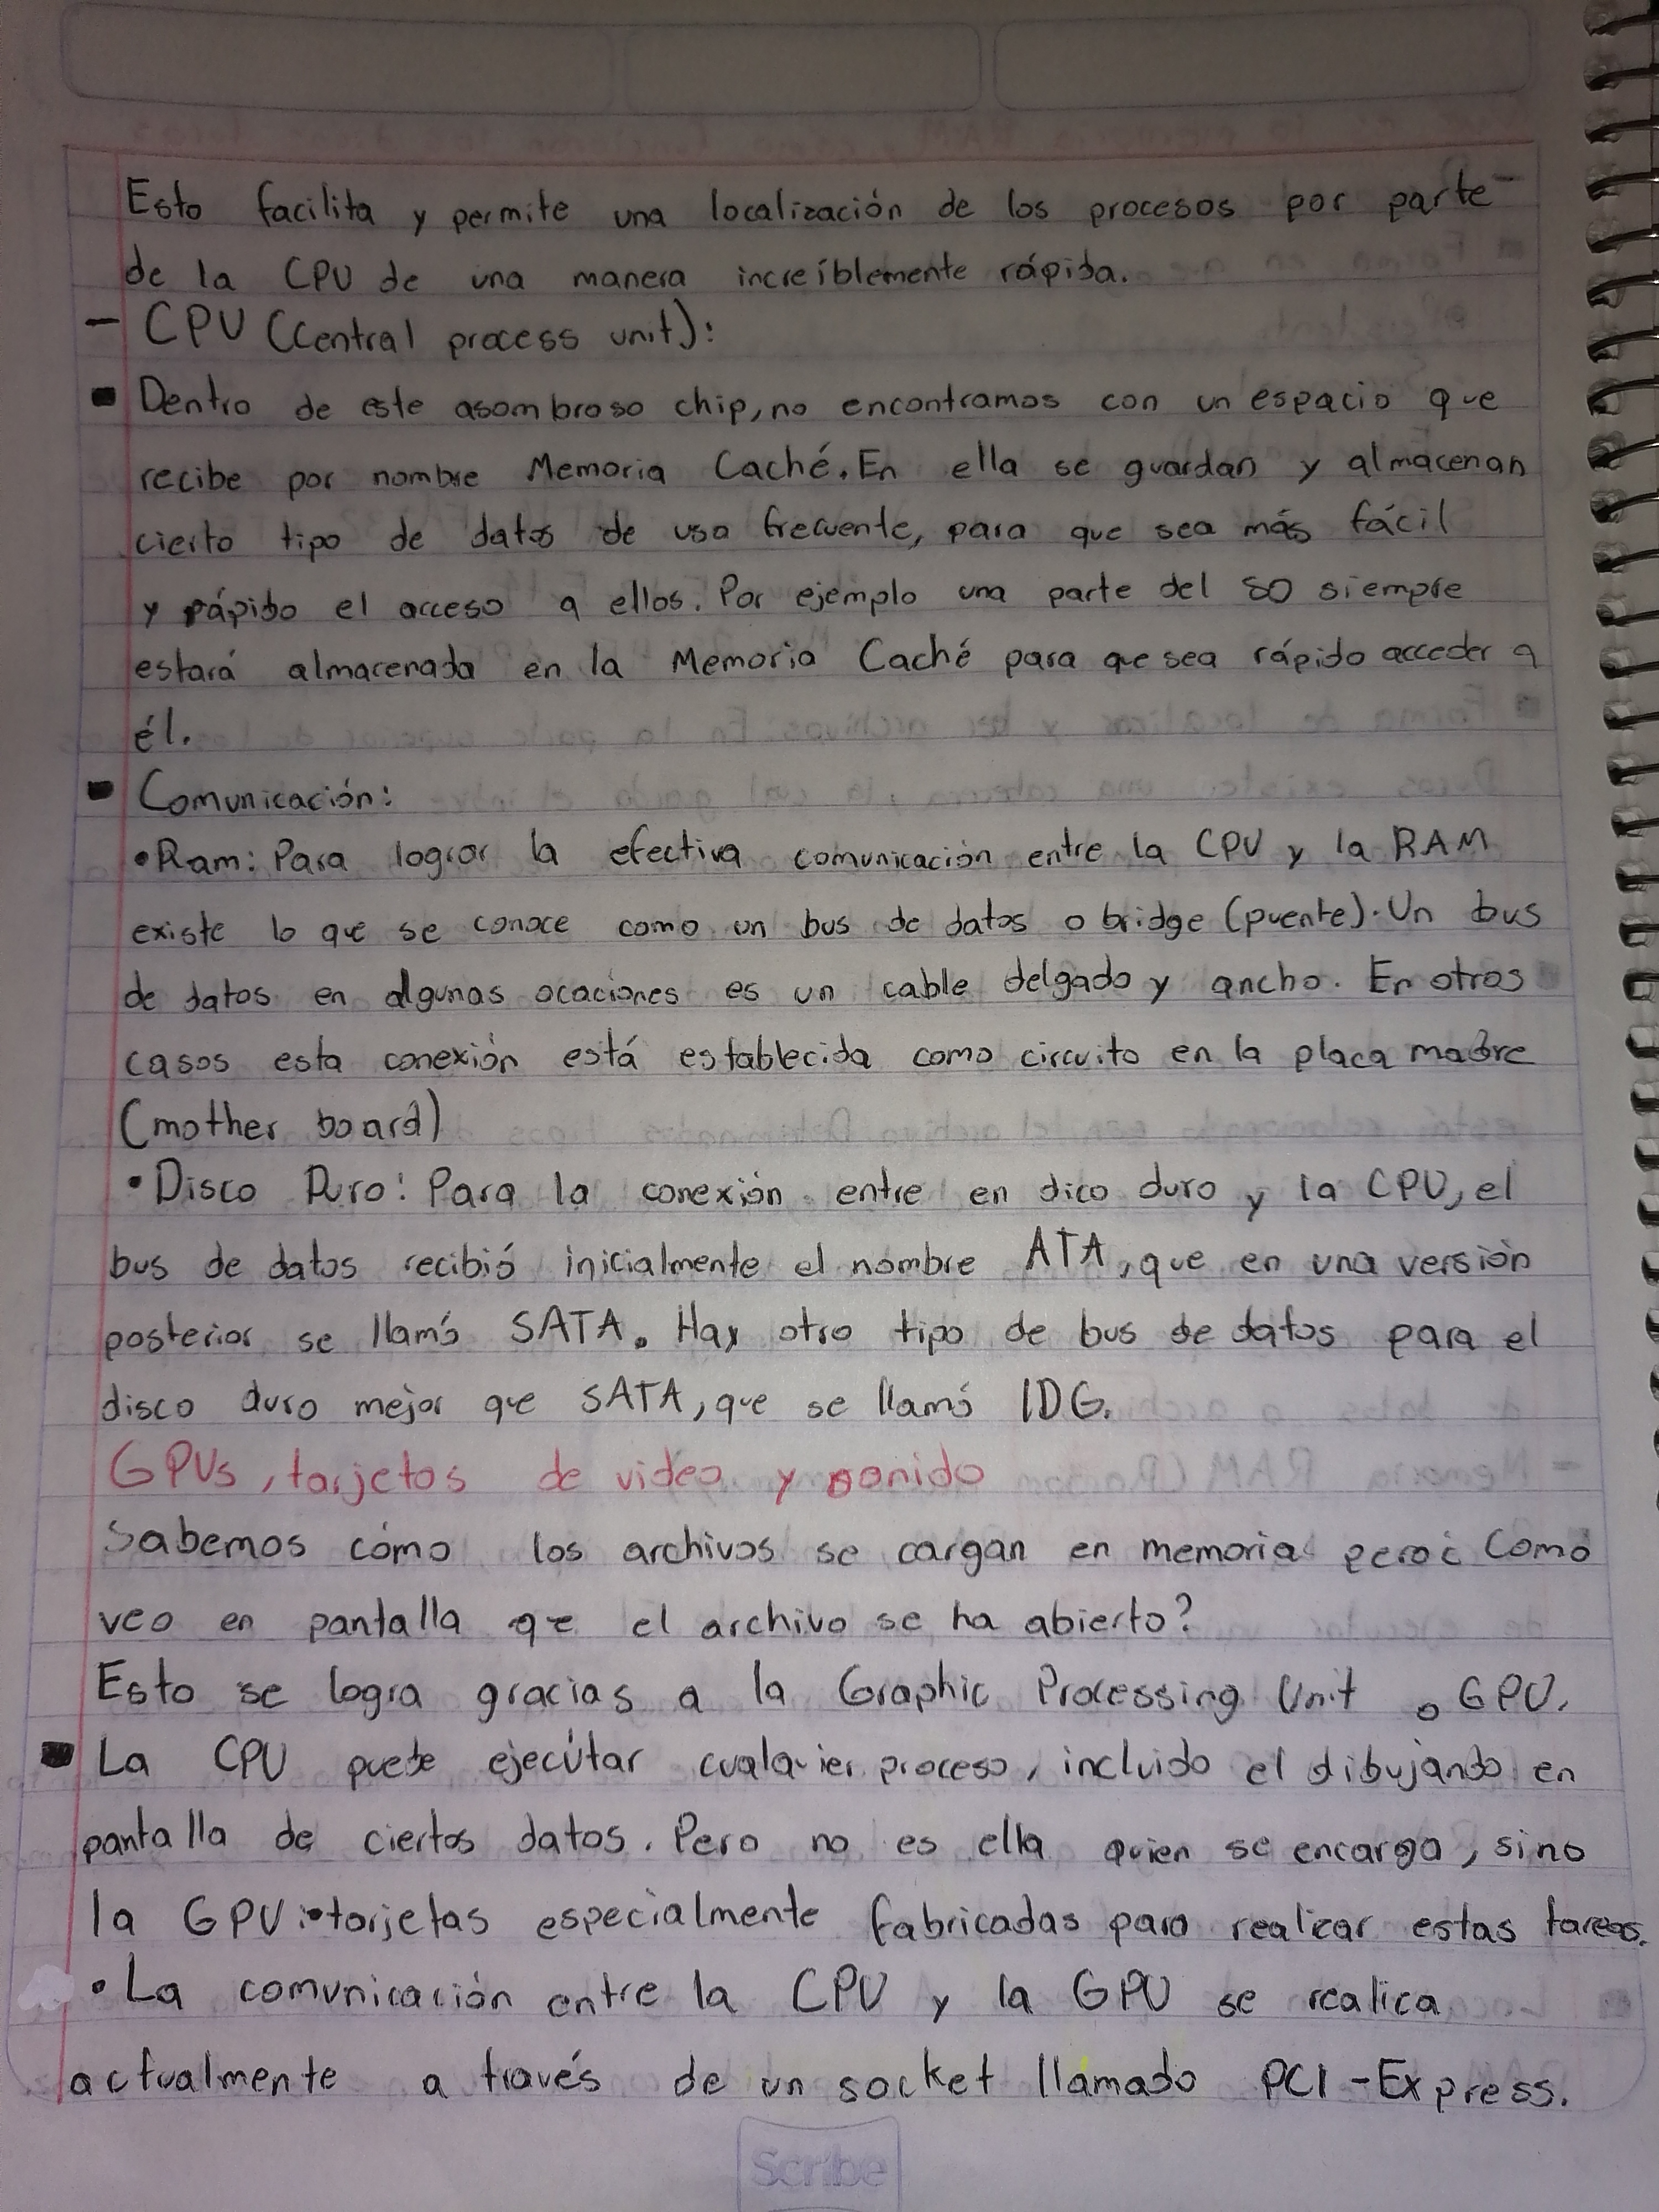 Esto facilita y permite una localización de los procesos por parte
de la CPU de una manera increíblemente rápida.
- CPU (Central process unit):
▪ Dentro de este asombroso chip, no encontramos con un espacio que
recibe por nombre Memoria Caché. En ella se guardan y almacenan
cierto tipo de datos de uso frecuente, para que sea más fácil
y rápido el acceso a ellos. Por ejemplo una parte del SO siempre
estará almacenada en la Memoria Caché para que sea rápido acceder a
él.
▪ Comunicación:
• Ram: Para lograr la efectiva comunicación entre la CPU y la RAM
existe lo que se conoce como un bus de datos o bridge (puente). Un bus
de datos en algunas ocaciones es un cable delgado y ancho. En otros
casos esta conexión está establecida como circuito en la placa madre
(mother board)
• Disco Duro: Para la conexión entre en dico duro y la CPU, el
bus de datos recibió inicialmente el nombre ATA, que en una versión
posterior se llamó SATA. Hay otro tipo de bus de datos para el
disco duro mejor que SATA, que se llamó IDG.
GPUs, tarjetas de video y sonido
Sabemos cómo los archivos se cargan en memoria pero ¿Como
veo en pantalla que el archivo se ha abierto?
Esto se logra gracias a la Graphic Processing Unit o GPU.
▪ La CPU puede ejecútar cualquier proceso, incluido el dibujando en
pantalla de ciertos datos. Pero no es ella quien se encarga, sino
la GPU: tarjetas especialmente fabricadas para realizar estas tareas.
• La comunicación entre la CPU y la GPU se realica
actualmente a través de un socket llamado PCI-Express.
Scribe